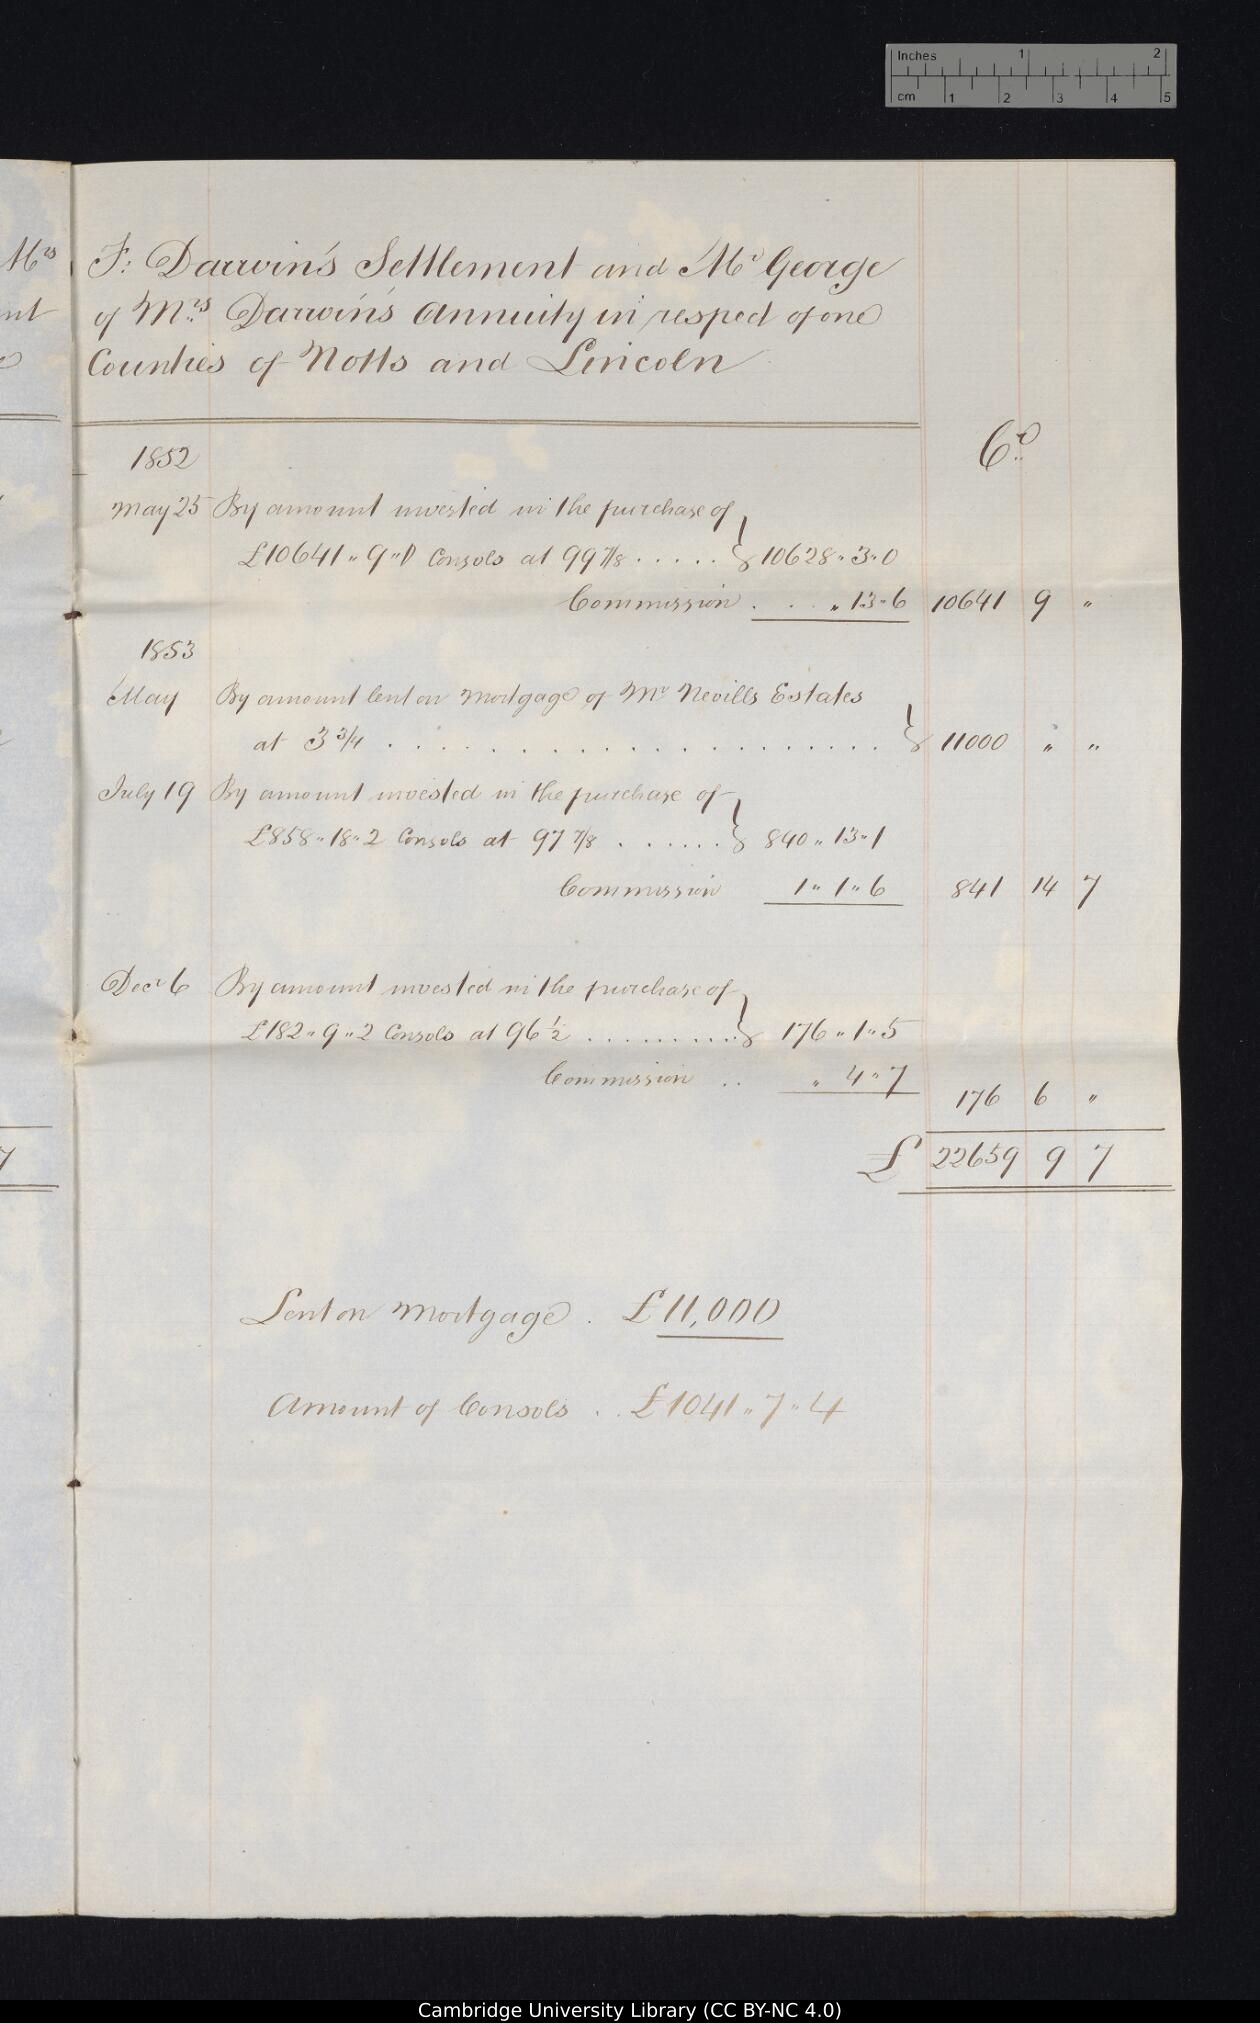 Inches 1 2
cm 1 2 3 4 5
Mrs F: Darwin's Settlement and Mr George
nt of Mrs Darwin's Annuity in respect of one
Counties of Notts and Lincoln
Cr
1852
May 25 By amount invested in the purchase of
£10641 " 9 " 0 Consols at 99 7/8 ..... } 10628 " 3 " 0
Commission . . . " 13 " 6 10641 9 "
1853
May By amount lent on Mortgage of Mr Nevills Estates
at 3 3/4 . . . . . . . . . . . . . . . . . . . . } 11000 " "
July 19 By amount invested in the purchase of
£858 " 18 " 2 Consols at 97 7/8 ...... } 840 " 13 " 1
Commission 1 " 1 " 6 841 14 7
Decr 6 By amount invested in the purchase of
£182 " 9 " 2 Consols at 96 1/2 ......... } 176 " 1 " 5
Commission .. " 4 " 7 176 6 "
7 £ 22659 9 7
Lent on Mortgage . £11,000
Amount of Consols . . £1041 " 7 " 4
Cambridge University Library (CC BY-NC 4.0)